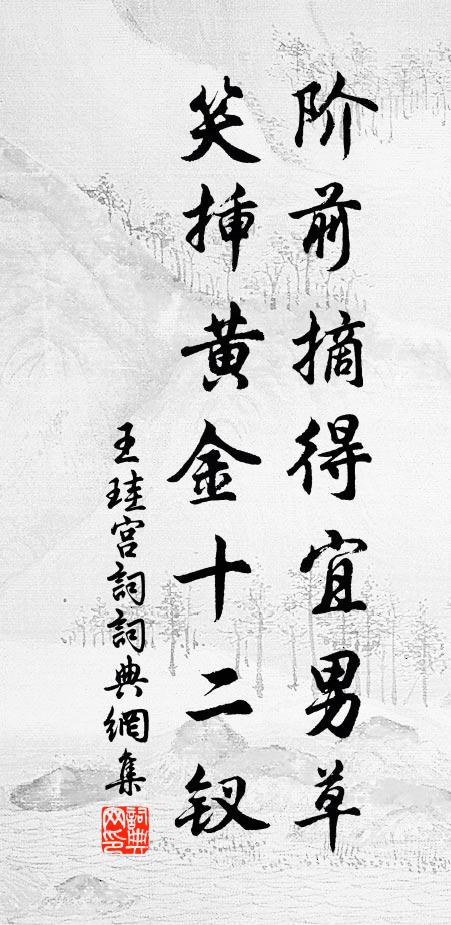 阶前摘得宜男草
笑揷黄金十二钗
王珪宫詞詞典網集
詞典网印